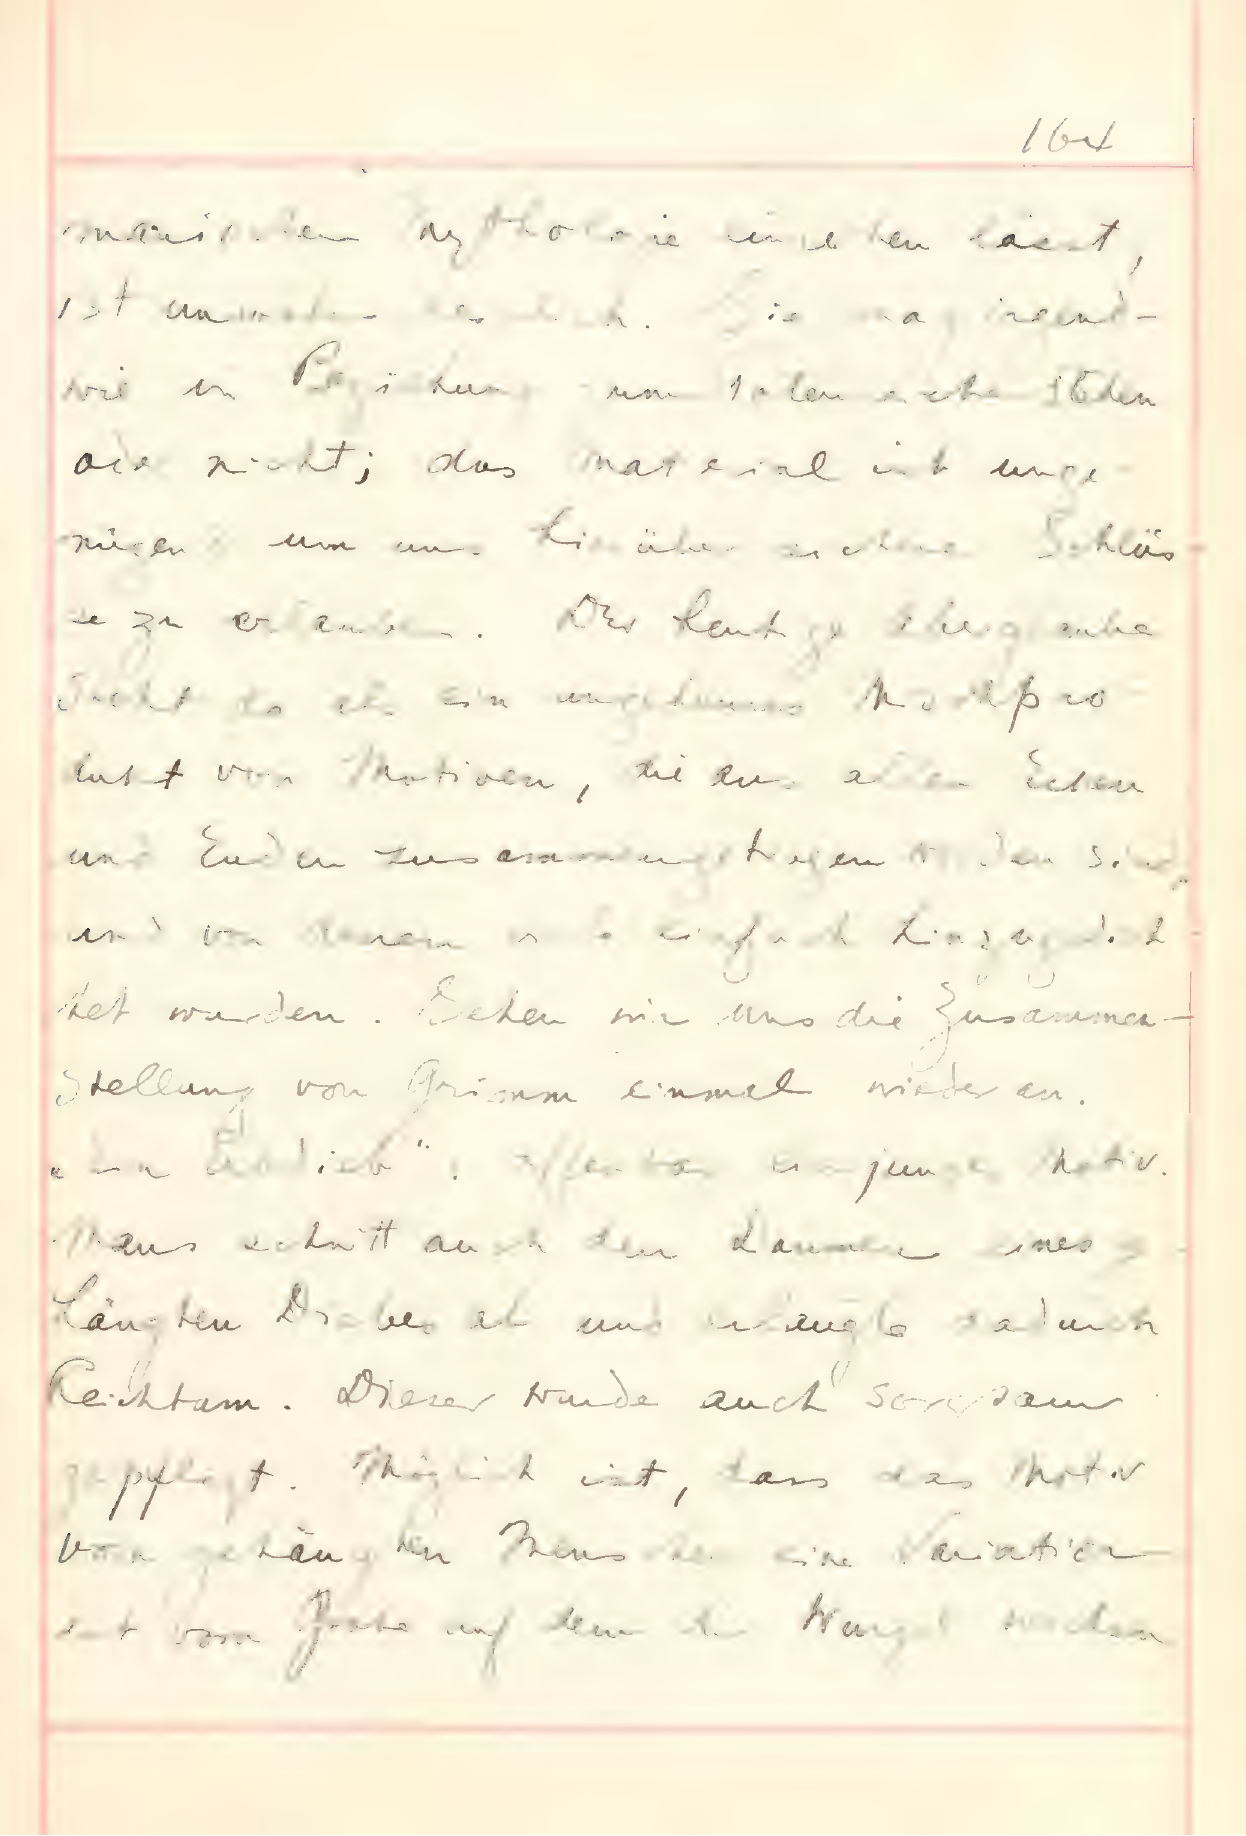 164
manischen Mythologie einreihen lässt,
ist unwahrscheinlich. Sie mag irgend-
wie in Beziehung zum stehen
oder nicht; das Material ist unge-
nügend um uns hierüber sichere Schlüs
se zu erlauben. Der heutige
ein ungeheures Mischpro
dukt von Motiven, die aus allen Ecken
und Enden zusammengetragen worden sind,
und von denen einfach hinzugedich
tet wurden. Sehen wir uns die Zusammen-
stellung von Grimm einmal wieder an.
„Ein Erbdieb": offenbar ein junges Motiv.
Man schnitt auch den Daumen eines ge-
hängten Diebes ab und erlangte dadurch
Reichtum. Dieser wurde auch sorgsam
gepflegt. Möglich ist, dass das Motiv
vom gehängten Menschen eine Variation
ist vom Grabe auf dem die Wurzel wachsen